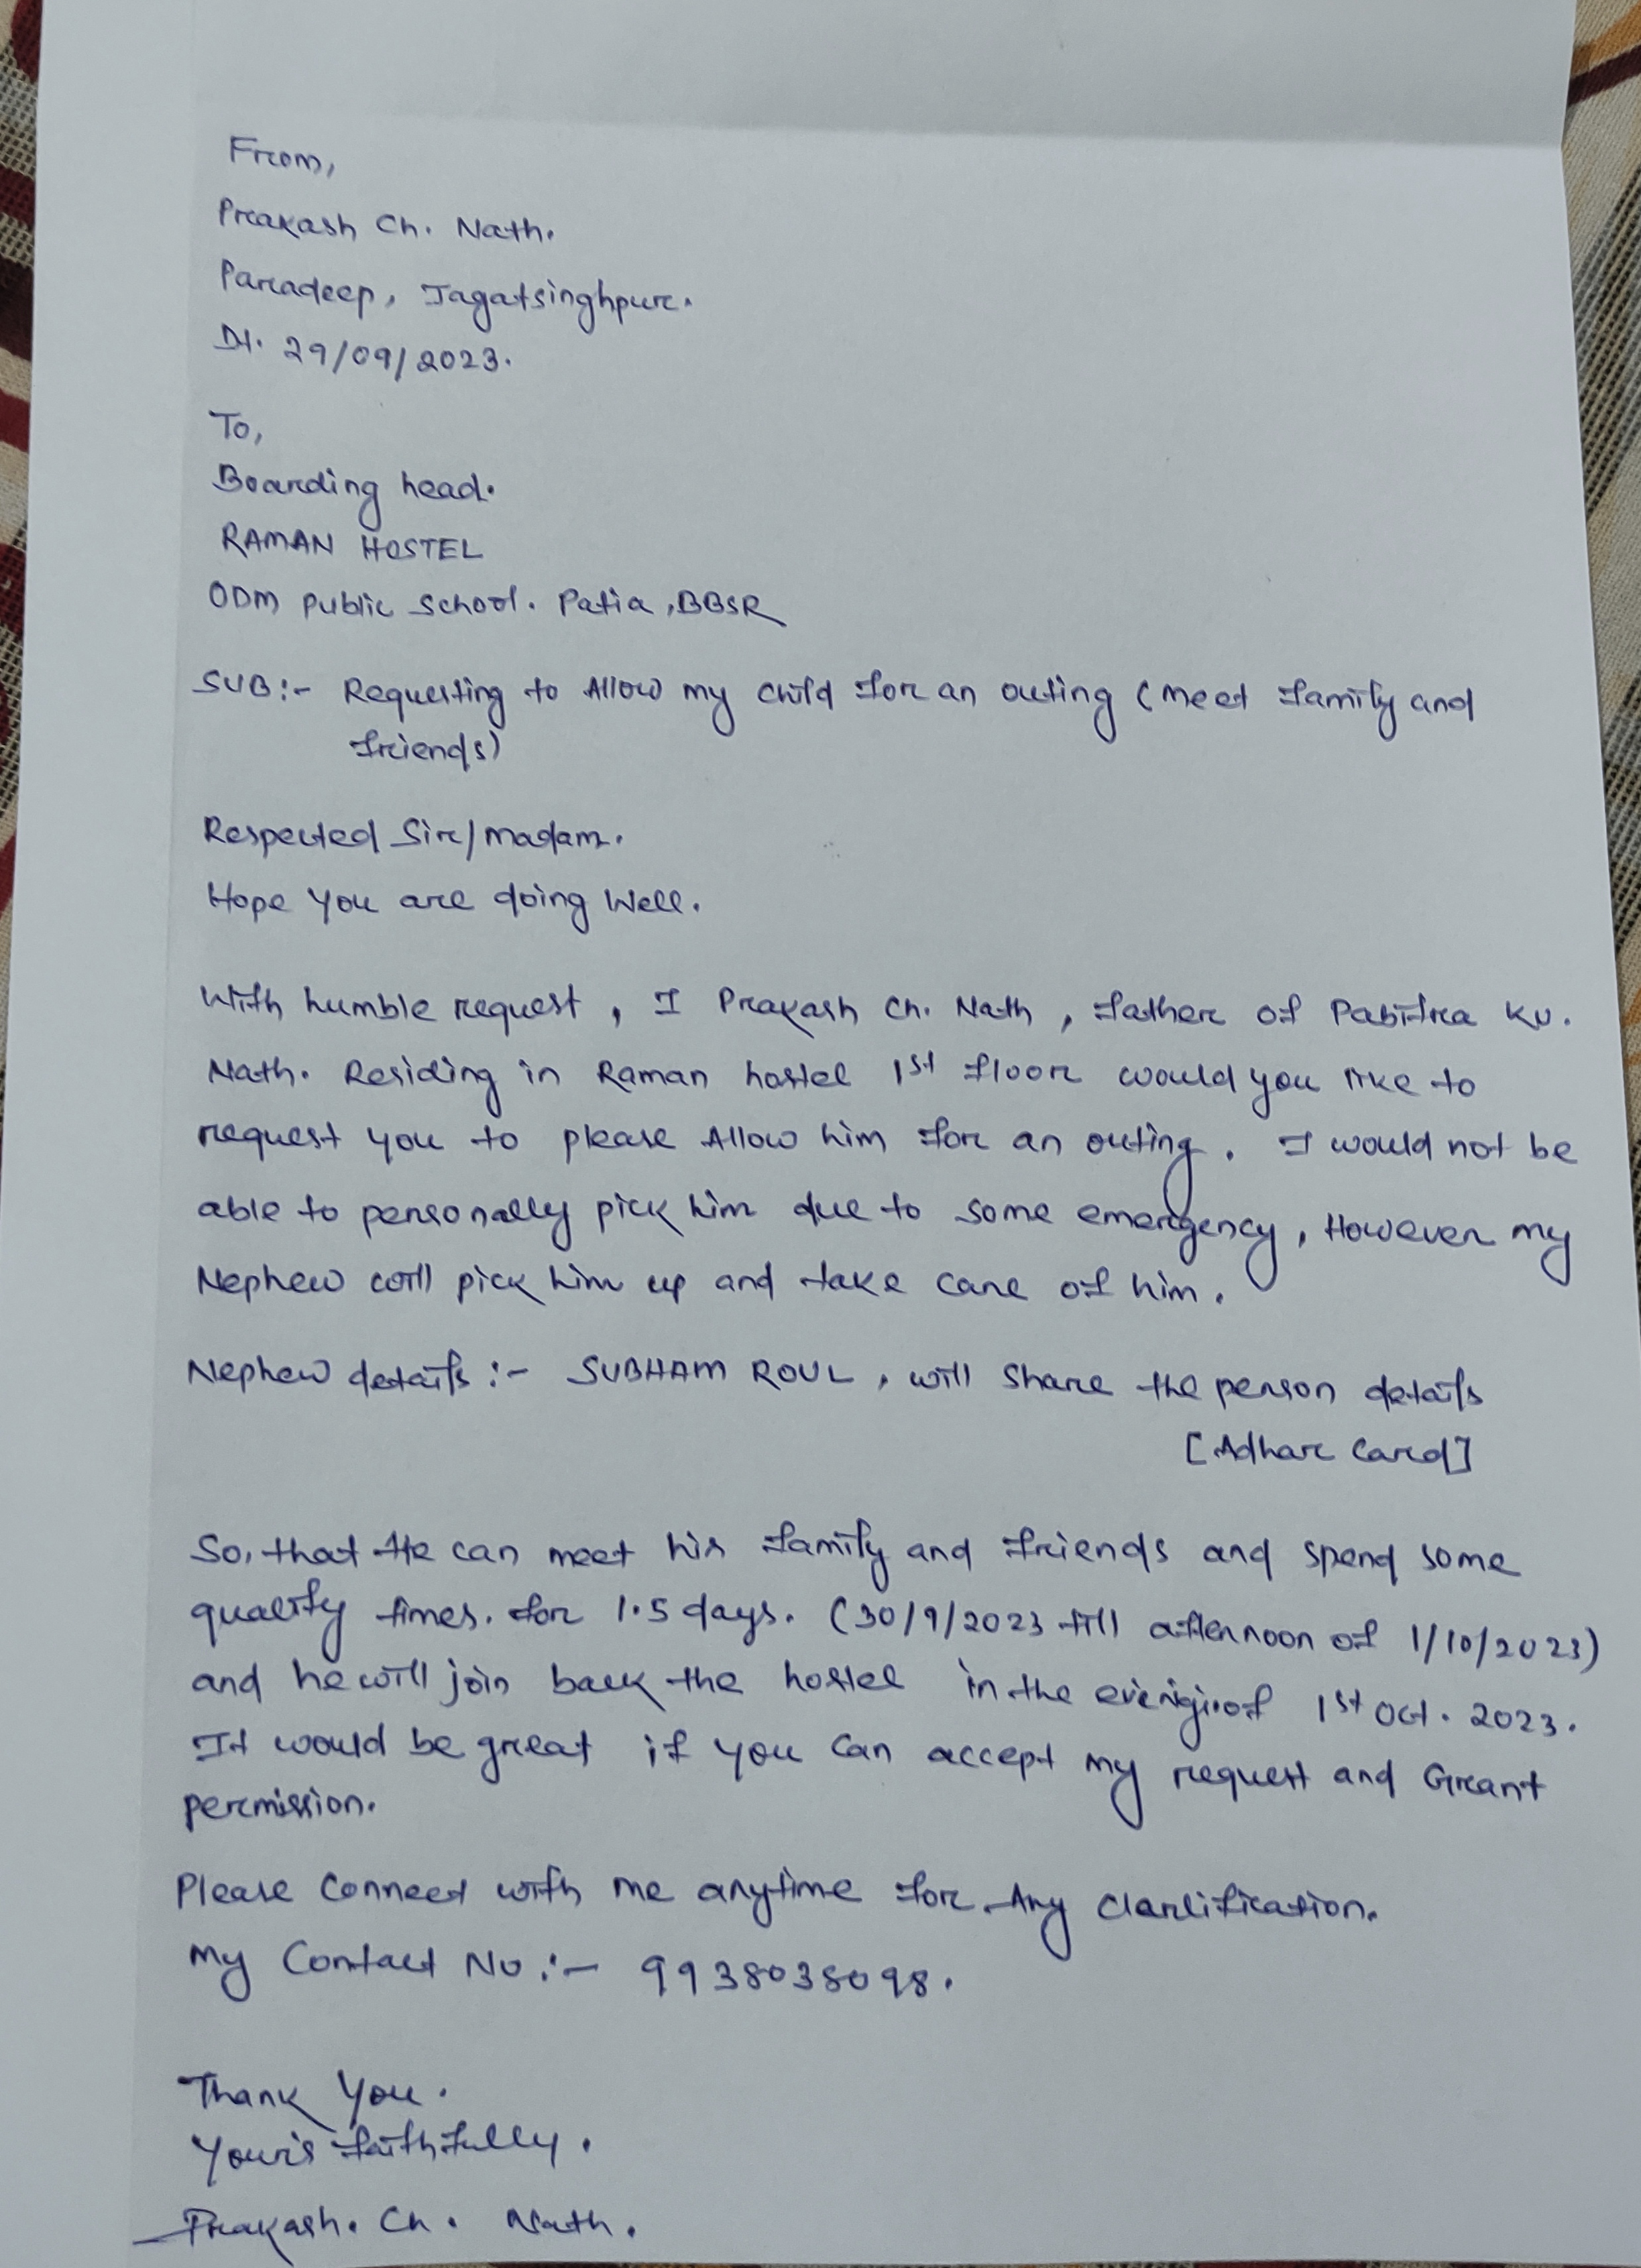 From,
Prakash Ch. Nath.
Paradeep, Jagatsinghpur.
Dt. 29/09/2023.
To,
Boarding head.
RAMAN HOSTEL
ODM Public School. Patia, BBSR
SUB:- Requesting to Allow my child for an outing (meet family and
friends)
Respected Sir/madam.
Hope you are doing Well.
With humble request, I Prakash Ch. Nath, father of Pabitra Ku.
Nath. Residing in Raman hostel 1st floor would you like to
request you to please Allow him for an outing. I would not be
able to personally pick him due to some emergency, However my
Nephew will pick him up and take care of him.
Nephew details:- SUBHAM ROUL, will share the person details
[Adhar Card]
So, that He can meet his family and friends and spend some
quality times. for 1.5 days. (30/9/2023 till afternoon of 1/10/2023)
and he will join back the hostel in the evening of 1st Oct. 2023.
It would be great if you can accept my request and Grant
permission.
Please Connect with me anytime for Any clarification.
My Contact No:- 9938038098.
Thank You.
Your's faithfully.
Prakash. Ch. Nath.